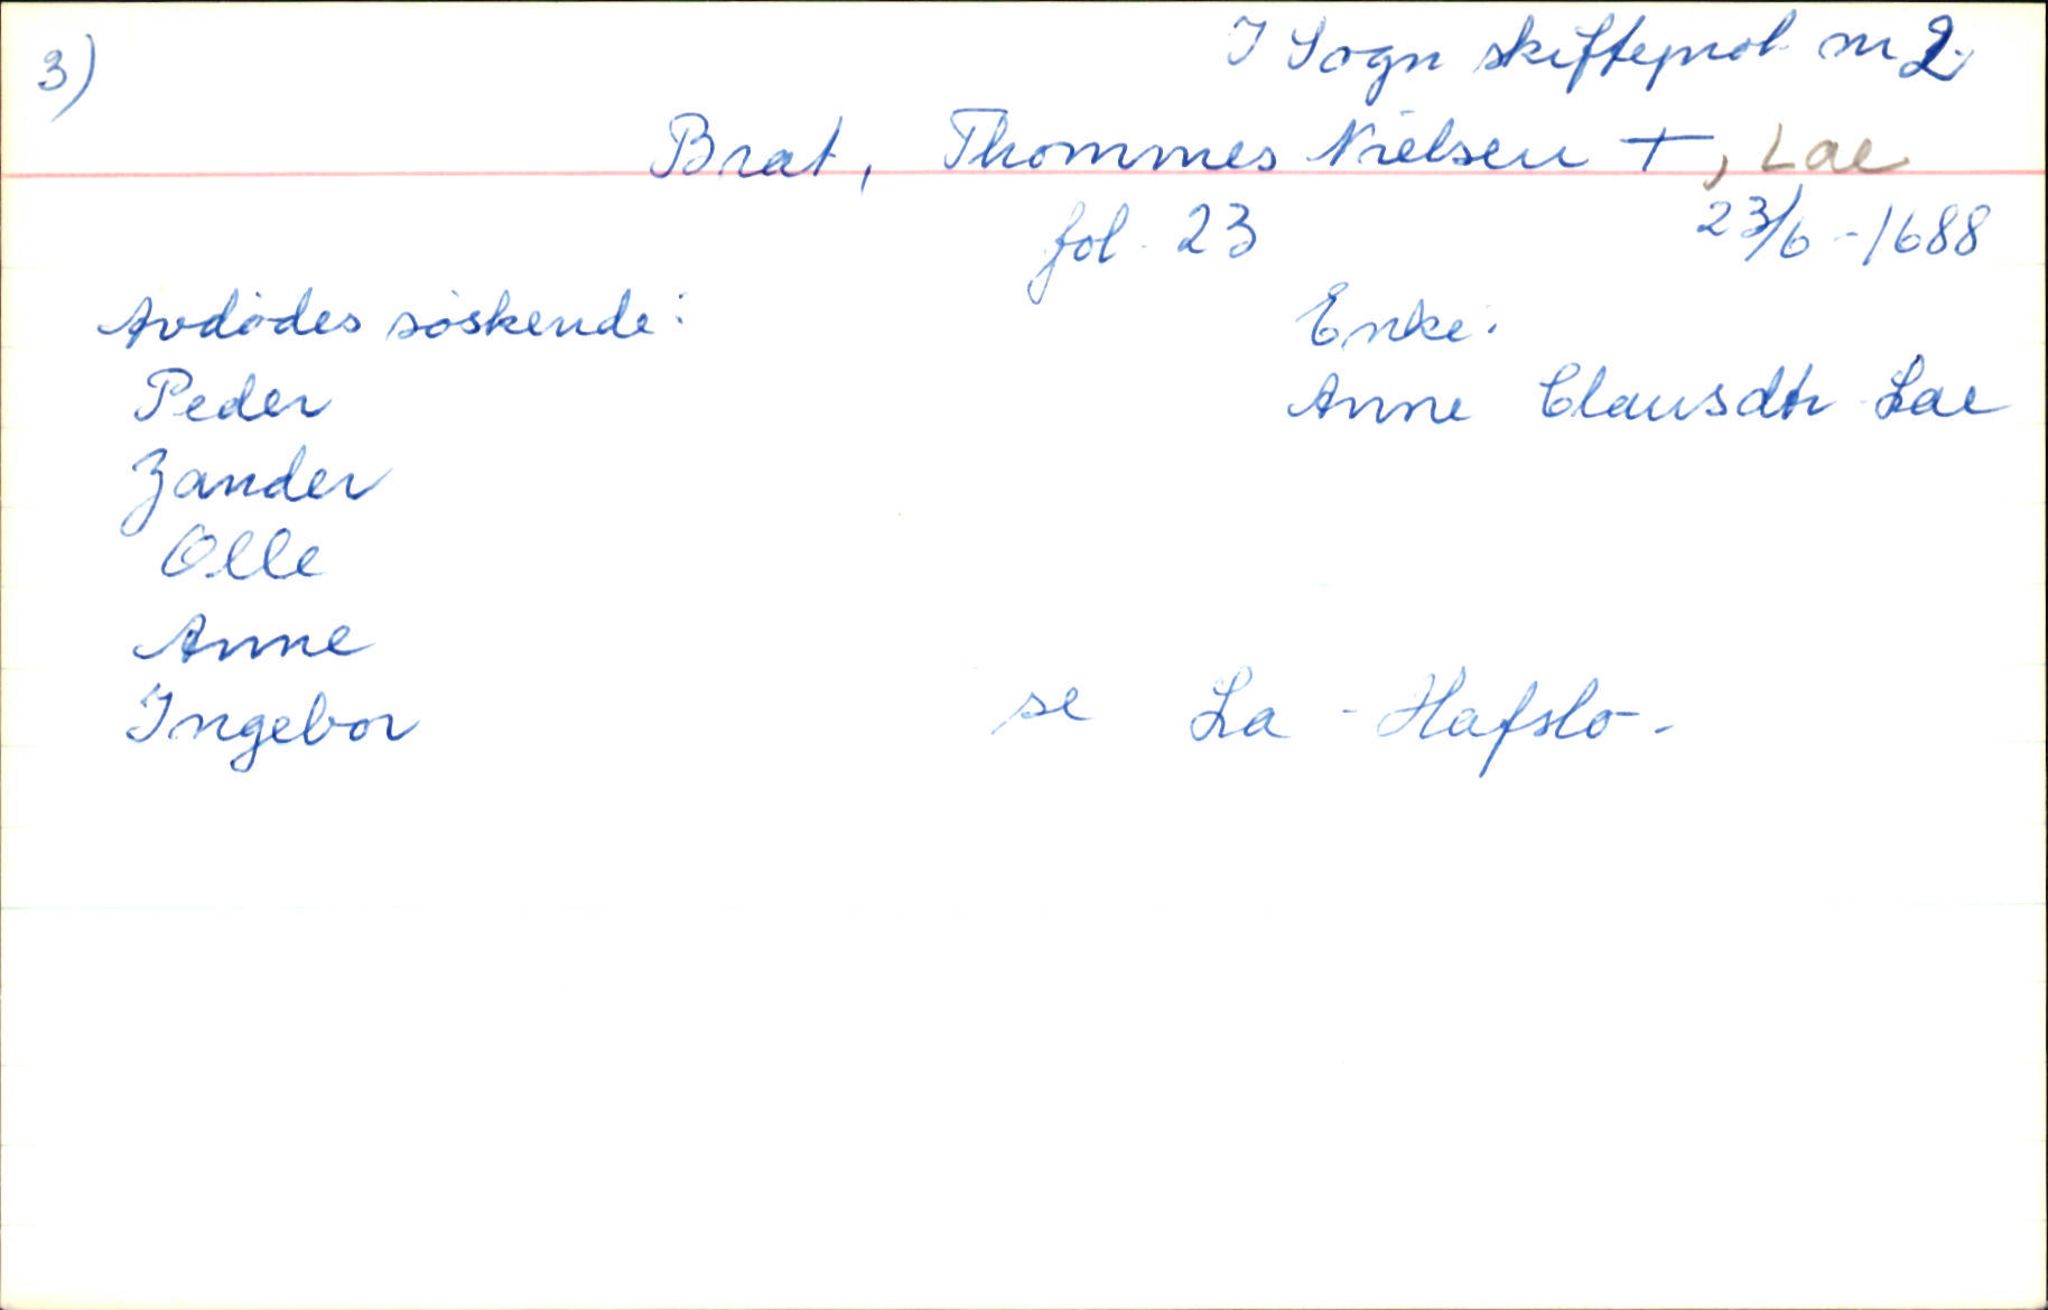 3)
I Sogn skifteprot nr 2.
Brat, Thommes Nielsen +, Lae
fol. 23 23/6 - 1688
Avdødes søskende: Enke:
Peder Anne Clausdtr Lae
Zander
Olle
Anne
Ingebor se La - Hafslo -